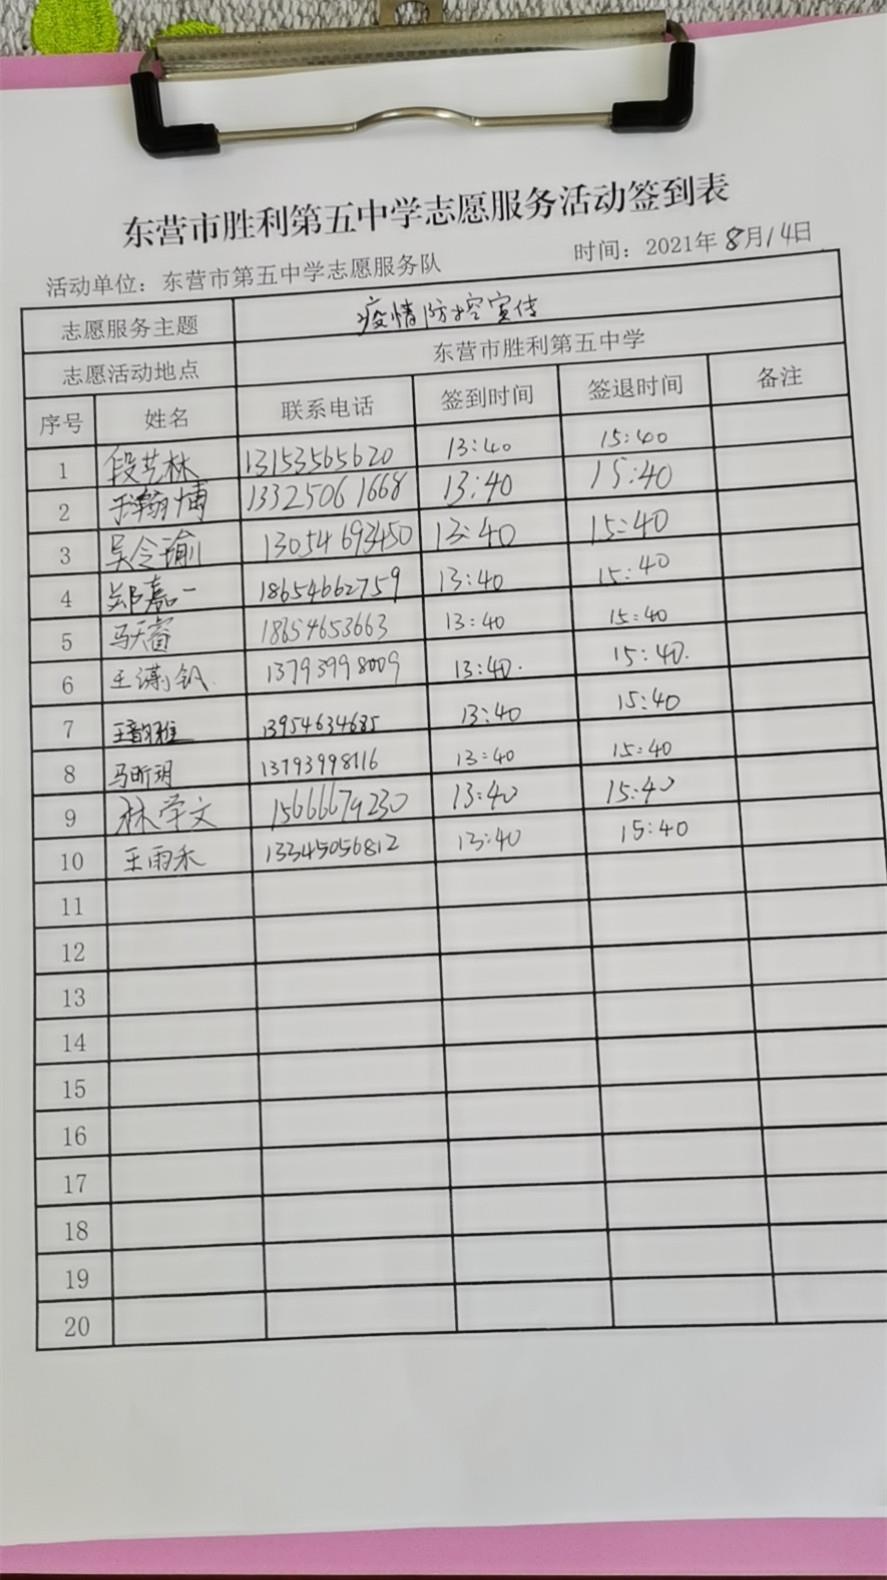 东营市胜利第五中学志愿服务活动签到表
活动单位：东营市第五中学志愿服务队 时间：2021年8月14日
志愿服务主题 疫情防控宣传
志愿活动地点 东营市胜利第五中学
序号 姓名 联系电话 签到时间 签退时间 备注
1 段艺林 13153565620 13:40 15:40
2 于瀚博 13325061668 13:40 15:40
3 吴令瑜 13054693450 13:40 15:40
4 郑嘉一 18654662759 13:40 15:40
5 马天睿 18654653663 13:40 15:40
6 王潇钒 13793998009 13:40. 15:40.
7 13954634685 13:40 15:40
8 马昕玥 13793998116 13:40 15:40
9 林学文 15666679230 13:40 15:40
10 王雨禾 13345056812 13:40 15:40
11
12
13
14
15
16
17
18
19
20